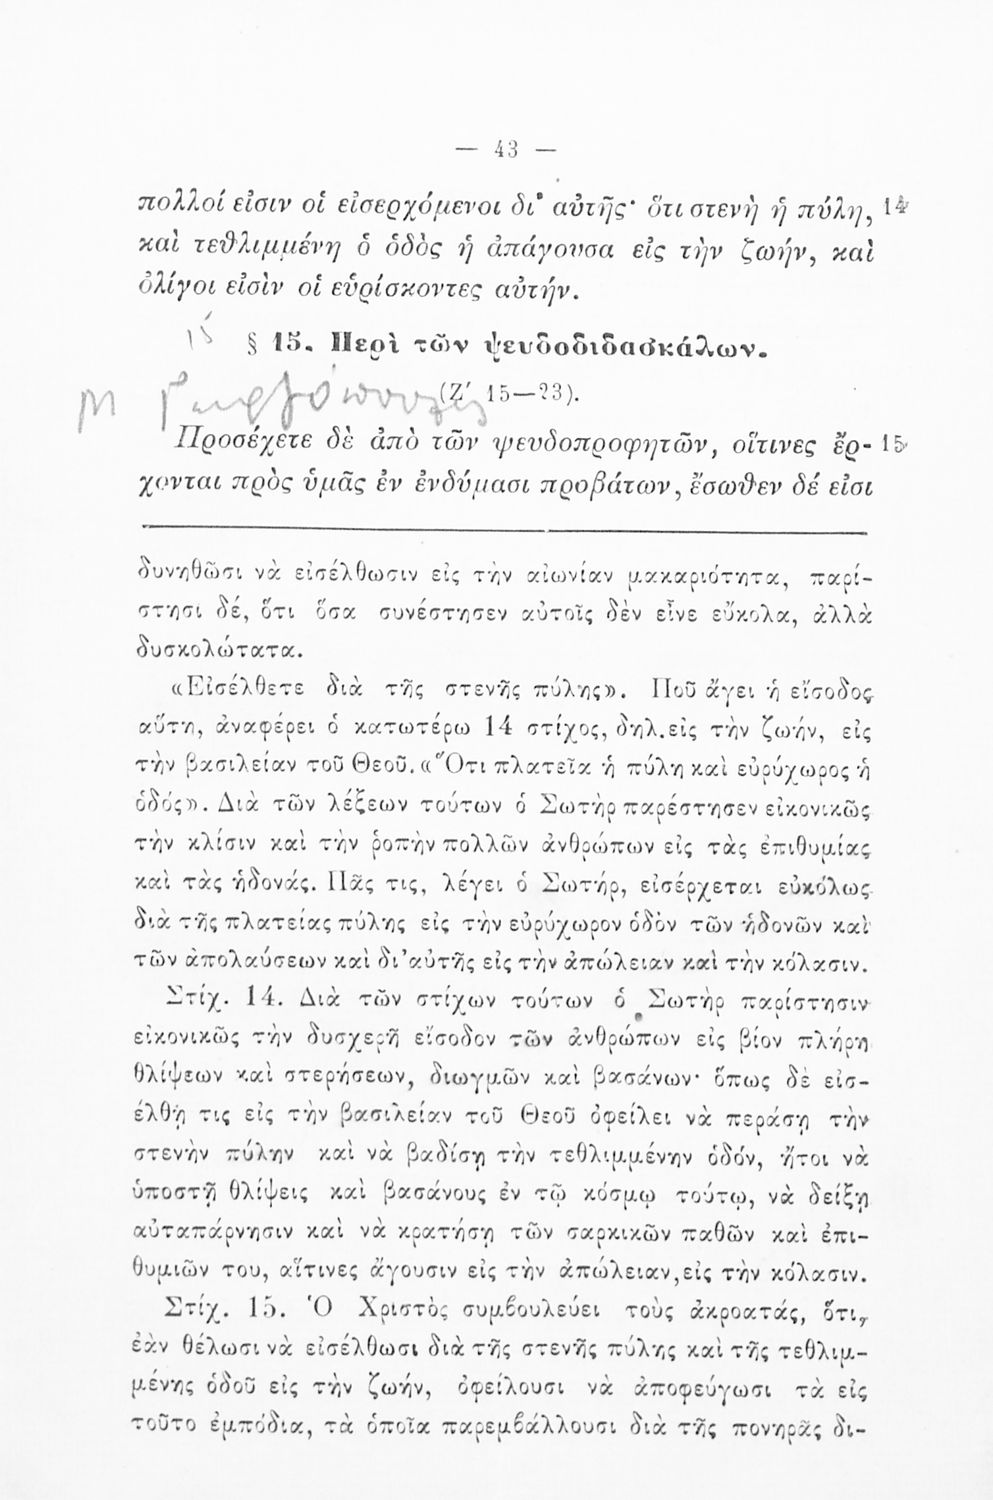 — 43 —
πολλοί εἰσιν οἱ εἰσερχόμενοι δι' αὐτῆς· ὅτι στενὴ ἡ πύλη, 14
καὶ τεθλιμμένη ὁ ὁδὸς ἡ ἀπάγουσα εἰς τὴν ζωήν, καὶ
ὀλίγοι εἰσὶν οἱ εὑρίσκοντες αὐτήν.
§ 15. Περὶ τῶν ψευδοδιδασκάλων.
(Ζ′ 15—23).
Προσέχετε δὲ ἀπὸ τῶν ψευδοπροφητῶν, οἵτινες ἔρ- 15
χονται πρὸς ὑμᾶς ἐν ἐνδύμασι προβάτων, ἔσωθεν δέ εἰσι
δυνηθῶσι νὰ εἰσέλθωσιν εἰς τὴν αἰωνίαν μακαριότητα, παρί-
στησι δέ, ὅτι ὅσα συνέστησεν αὐτοῖς δὲν εἶνε εὔκολα, ἀλλὰ
δυσκολώτατα.
«Εἰσέλθετε διὰ τῆς στενῆς πύλης». Ποῦ ἄγει ἡ εἴσοδος
αὕτη, ἀναφέρει ὁ κατωτέρω 14 στίχος, δηλ. εἰς τὴν ζωήν, εἰς
τὴν βασιλείαν τοῦ Θεοῦ. «Ὅτι πλατεῖα ἡ πύλη καὶ εὐρύχωρος ἡ
ὁδός». Διὰ τῶν λέξεων τούτων ὁ Σωτὴρ παρέστησεν εἰκονικῶς
τὴν κλίσιν καὶ τὴν ῥοπὴν πολλῶν ἀνθρώπων εἰς τὰς ἐπιθυμίας
καὶ τὰς ἡδονάς. Πᾶς τις, λέγει ὁ Σωτήρ, εἰσέρχεται εὐκόλως
διὰ τῆς πλατείας πύλης εἰς τὴν εὐρύχωρον ὁδὸν τῶν ἡδονῶν καὶ
τῶν ἀπολαύσεων καὶ δι' αὐτῆς εἰς τὴν ἀπώλειαν καὶ τὴν κόλασιν.
Στίχ. 14. Διὰ τῶν στίχων τούτων ὁ Σωτὴρ παρίστησιν
εἰκονικῶς τὴν δυσχερῆ εἴσοδον τῶν ἀνθρώπων εἰς βίον πλήρη
θλίψεων καὶ στερήσεων, διωγμῶν καὶ βασάνων· ὅπως δὲ εἰσ-
έλθῃ τις εἰς τὴν βασιλείαν τοῦ Θεοῦ ὀφείλει νὰ περάσῃ τὴν
στενὴν πύλην καὶ νὰ βαδίσῃ τὴν τεθλιμμένην ὁδόν, ἤτοι νὰ
ὑποστῇ θλίψεις καὶ βασάνους ἐν τῷ κόσμῳ τούτῳ, νὰ δείξῃ
αὐταπάρνησιν καὶ νὰ κρατήσῃ τῶν σαρκικῶν παθῶν καὶ ἐπι-
θυμιῶν του, αἵτινες ἄγουσιν εἰς τὴν ἀπώλειαν, εἰς τὴν κόλασιν.
Στίχ. 15. Ὁ Χριστὸς συμβουλεύει τοὺς ἀκροατάς, ὅτι,
ἐὰν θέλωσι νὰ εἰσέλθωσι διὰ τῆς στενῆς πύλης καὶ τῆς τεθλιμ-
μένης ὁδοῦ εἰς τὴν ζωήν, ὀφείλουσι νὰ ἀποφεύγωσι τὰ εἰς
τοῦτο ἐμπόδια, τὰ ὁποῖα παρεμβάλλουσι διὰ τῆς πονηρᾶς δι-